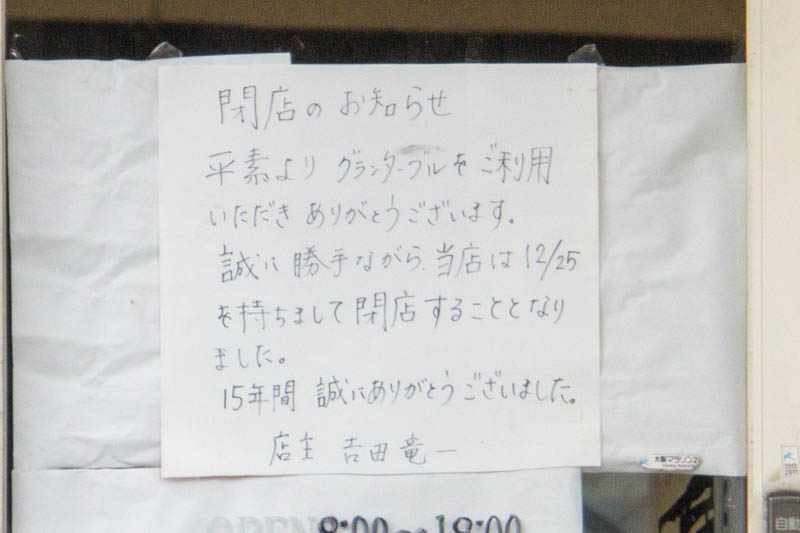 閉店のお知らせ
平素より グランターブルをご利用
いただき ありがとうございます。
誠に 勝手ながら、当店は 12/25
を持ちまして 閉店することとなり
ました。
15年間 誠にありがとうございました。
店主 吉田竜一
大阪マラソン
OPEN 8:00〜18:00
自動